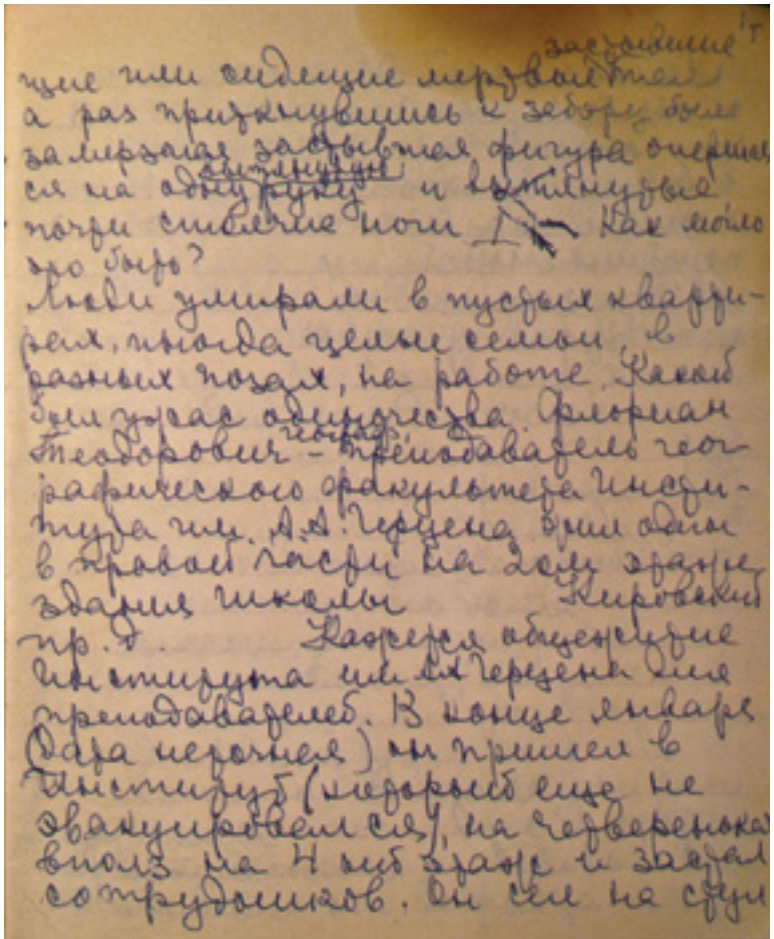 застывшие
щие или сидящие мертвые тела
а раз приткнувшись к забору была
замерзшая застывшая фигура опершая
вытянутую
ся на одну руку и вытянутые
почти стоячие ноги Как могло
это быть?
Люди умирали в пустых кварти-
рах, иногда целые семьи, в
разных позах, на работе. Какой
был ужас одиночества. Флориан
Теодорович - преподаватель геог-
рафического факультета Инсти-
тута им. А.А. Герцена жил один
в правой части на 2ом этаже
здания школы Кировский
пр. д. Кажется общежитие
Института им АА Герцена для
преподавателей. В конце января
(дата неточная) он пришел в
Институт (который еще не
эвакуировался), на четвереньках
вполз на 4 ый этаж и застал
сотрудников. Он сел на стул